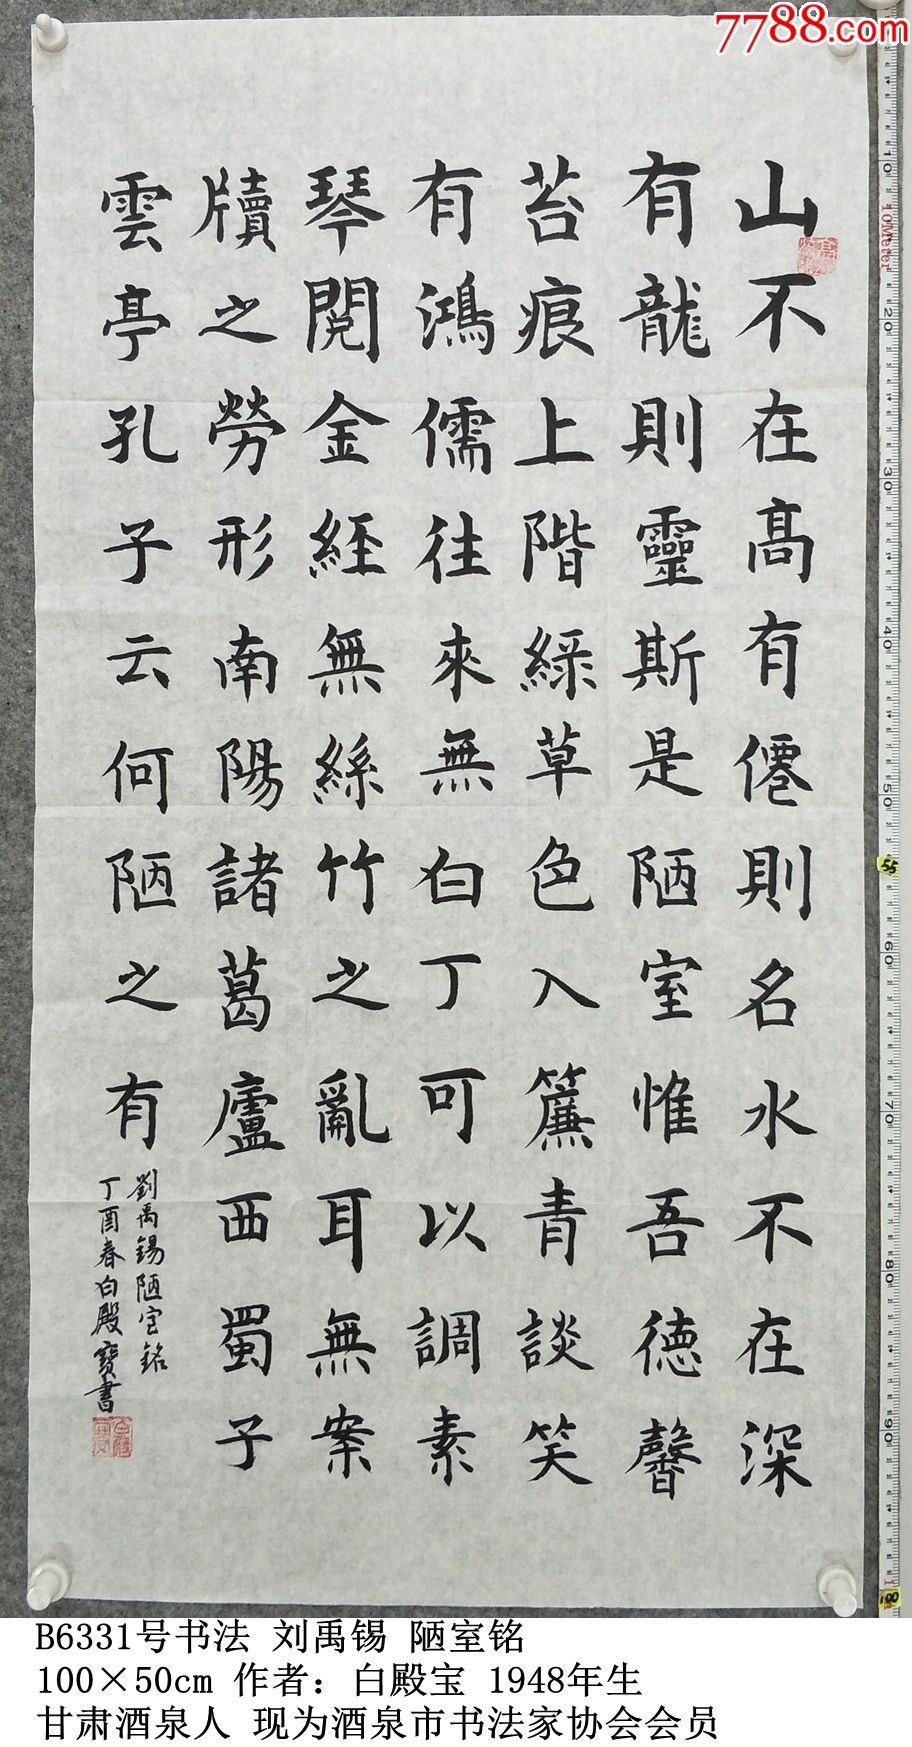 7788.com
山不在高有僊則名水不在深
有龍則靈斯是陋室惟吾德馨
苔痕上階綠草色入簾青談笑
有鴻儒往來無白丁可以調素
琴閱金經無絲竹之亂耳無案
牘之勞形南陽諸葛廬西蜀子
雲亭孔子云何陋之有
劉禹錫陋室銘
丁酉春白殿寶書
10Meter
10
20
30
40
50
55
60
70
80
90
100
B6331号书法 刘禹锡 陋室铭
100×50cm 作者：白殿宝 1948年生
甘肃酒泉人 现为酒泉市书法家协会会员